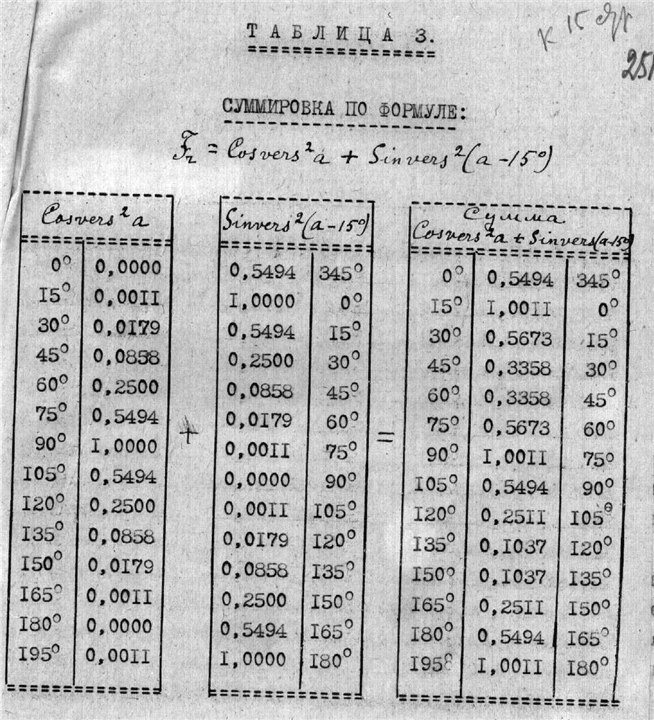 к 15 стр
251
ТАБЛИЦА 3.
СУММИРОВКА ПО ФОРМУЛЕ:
F₂ = Cosvers²a + Sinvers²(a-15°)
Cosvers²a Sinvers²(a-15°) Сумма
Cosvers²a + Sinvers(a-15°)
0° 0,0000 0,5494 345° 0° 0,5494 345°
I5° 0,00II I,0000 0° I5° I,00II 0°
30° 0,0I79 0,5494 I5° 30° 0,5673 I5°
45° 0,0858 0,2500 30° 45° 0,3358 30°
60° 0,2500 0,0858 45° 60° 0,3358 45°
75° 0,5494 + 0,0I79 60° = 75° 0,5673 60°
90° I,0000 0,00II 75° 90° I,00II 75°
I05° 0,5494 0,0000 90° I05° 0,5494 90°
I20° 0,2500 0,00II I05° I20° 0,25II I05°
I35° 0,0858 0,0I79 I20° I35° 0,I037 I20°
I50° 0,0I79 0,0858 I35° I50° 0,I037 I35°
I65° 0,00II 0,2500 I50° I65° 0,25II I50°
I80° 0,0000 0,5494 I65° I80° 0,5494 I65°
I95° 0,00II I,0000 I80° I95° I,00II I80°